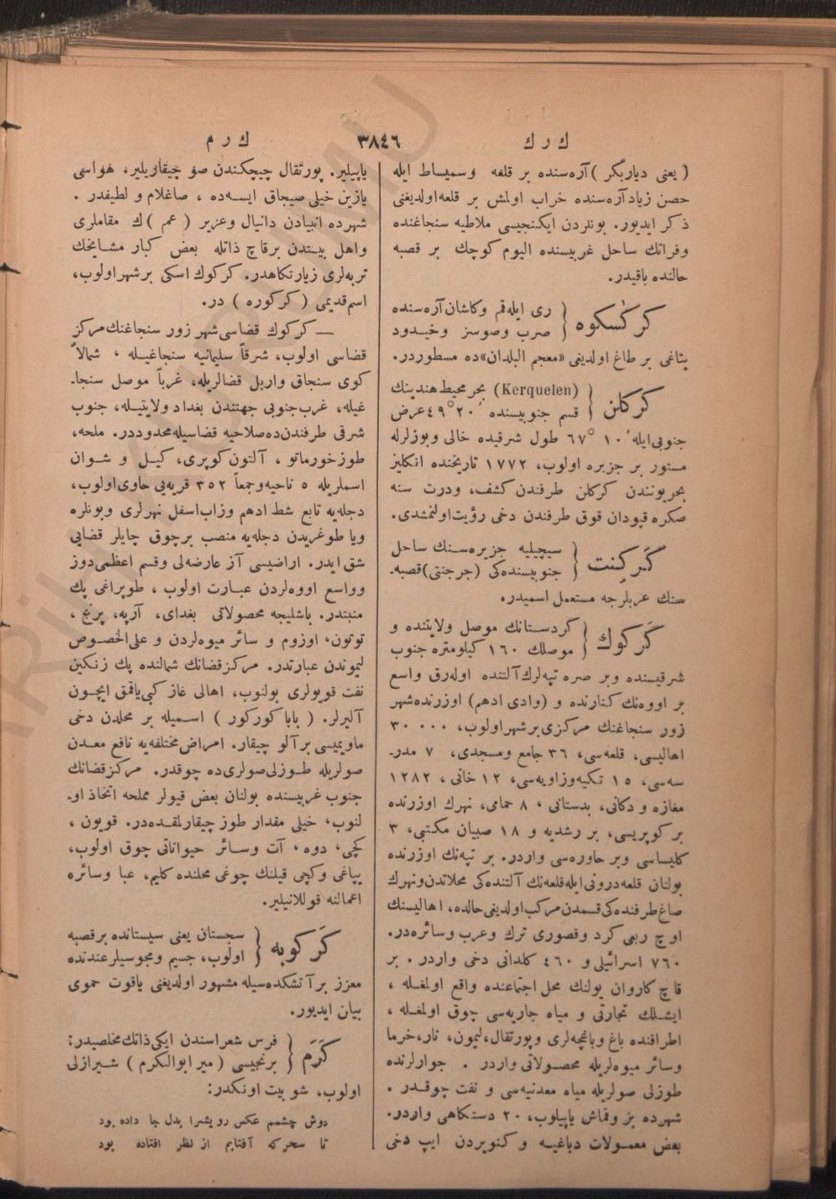 ك ر ك
٣٨٤٦
ك ر م
( يعنى دياربكر ) آره‌سنده بر قلعه وسميساط ايله
حصن زياد آره‌سنده خراب اولمش بر قلعه اولديغنى
ذكر ايديور. بونلردن ايكنجيسى ملاطيه سنجاغنده
وفراتك ساحل غربيسنده اليوم كوچك بر قصبه
حالنده باقيدر.
كركسكوه { رى ايله قم وكاشان آره‌سنده
صرب وصوسز وخيـدود
يتاغى بر طاغ اولديغى «معجم البلدان»ده مسطوردر.
كركلن { (Kerquelen) بحر محيط هندينك
قسم جنوبيسنده ٢٠َ ٤٩° عرض
جنوبى ايله ١٠َ ٦٧° طول شرقيده خالى وبوزلرله
مستور بر جزيره اولوب، ١٧٧٢ تاريخنده انكليز
بحريونندن كركلن طرفندن كشف، ودرت سنه
صكره قپودان قوق طرفندن دخى رؤيت اولنمشدى.
كَركِنت { سيچيليه جزيره‌سـنك ساحل
جنوبيسنده‌كى (جرجنتى) قصبه‌ـ
سنك عربلرجه مستعمل اسميدر.
كَركوك { كردستانك موصل ولايتنده و
موصلك ١٦٠ كيلومتره جنوب
شرقيسنده وبر صره تپه‌لرك آلتنده اوله‌رق واسع
بر اووه‌نك كنارنده و (وادى ادهم) اوزرنده شهر
زور سنجاغنك مركزى بر شهر اولوب، ٣٠ ٠٠٠
اهاليسى، قلعه‌سى، ٣٦ جامع ومسجدى، ٧ مدرـ
سه‌سى، ١٥ تكيه وزاويه‌سى، ١٢ خانى، ١٢٨٢
مغازه و دكانى، بدستانى، ٨ حمامى، نهرك اوزرنده
بر كوپريسى، بر رشديه و ١٨ صبيان مكتبى، ٣
كليساسى وبر حاوره‌سى واردر. بر تپه‌نك اوزرنده
بولنان قلعه درونى ايله قلعه‌نك آلتنده‌كى محلاتدن ونهرك
صاغ طرفنده‌كى قسمدن مركب اولديغى حالده، اهاليسنك
اوچ ربعى كرد وقصورى ترك وعرب وسائره‌در.
٧٦٠ اسرائيلى و ٤٦٠ كلدانى دخى واردر. بر
قاچ كاروان يولنك محل اجتماعنده واقع اولمغـله ،
ايشلك تجارتى و مياه جاريه‌سى چوق اولمغله ،
اطرافنده باغ وباغچه‌لرى وپورتقال، ليمون، نار، خرما
وسائر ميوه‌لريله محصـولاتى واردر . جوارلرنده
طوزلى صولريله مياه معدنيه‌سى و نفت چوقـدر .
شهرده بز وقماش ياپيلوب، ٢٠ دستكاهى واردر.
بعض معمـولات دباغيـه و كنويردن ايپ دخى
ياپيلير. پورتقال چيچكندن صو چيقاريلير، هواسى
يازين خيلى صيجاق ايسـه‌ده ، صاغلام و لطيفدر .
شهرده انبيادن دانيال وعزير ( عم ) ك مقاملرى
واهل بيـتدن برقاچ ذاتله بعض كبار مشـايخك
تربه‌لرى زيارتكاهدر. كركوك اسكى بر شهر اولوب،
اسم قديمى ( كركوره ) در.
— كركوك قضاسى شهر زور سنجاغنك مركز
قضاسى اولوب، شرقاً سليمانيه سنجاغيـله ، شمالاً
كوى سنجاق واربل قضالريله، غرباً موصل سنجاـ
غيله، غرب جنوبى جهتندن بغداد ولايتيـله، جنوب
شرقى طرفندن‌ده صلاحيه قضاسيله محدوددر. ملحه،
طوزخورماتو ، آلتون كوپرى، كيـل و شـوان
اسملريله ٥ ناحيه وجمعاً ٣٥٢ قريه‌يى حاوى اولوب،
دجله‌يه تابع شط ادهم وزاب اسفل نهرلرى وبونلره
ويا طوغريدن دجله‌يه منصب بر چوق چايلر قضايى
شق ايدر. اراضيسى آز عارضه‌لى وقسم اعظمى دوز
وواسع اووه‌لردن عبـارت اولوب ، طوپراغى پك
منبتدر. باشليجه محصولاتى بغداى، آرپه، پرنج ،
توتون، اوزوم و سائر ميوه‌لردن و على‌الخصـوص
ليموندن عبارتدر. مركز قضانك شمالنده پك زنكين
نفت قويولرى بولنوب، اهالى غاز كبى ياقمق ايچـون
آليرلر. ( بابا كوركور ) اسـميله بر محلدن دخى
ماويمسى بر آلو چيقار. امراض مختلفه‌يه نافع معـدن
صولريله طـوزلى صولرى‌ده چوقدر. مركز قضانك
جنوب غربيسنده بولنان بعض قيولر مملحه اتخاذ اوـ
لنوب، خيلى مقدار طوز چيقارلمقـده‌در. قويون ،
كچى، دوه، آت وسـائر حيواناتى چوق اولوب،
يپاغى وكچى قيلنك چوغى محلنده كليم، عبا وسائره
اعمالنه قوللانيلير.
كَركويه { سجستان يعنى سيستانده بر قصبه
اولوب، جسيم ومجوسيلر عندنده
معزز بر آتشكده‌سيله مشهور اولديغى ياقوت حموى
بيان ايديور.
كَرَم { فرس شعراسندن ايكى ذاتك مخلصيدر:
برنجيسى ( مير ابوالكرم ) شـيرازلى
اولوب، شو بيت اونكدر:
دوش چشمم عكس رويشرا بدل جا داده بود
تا سحركه آفتابم از نظر افتاده بود